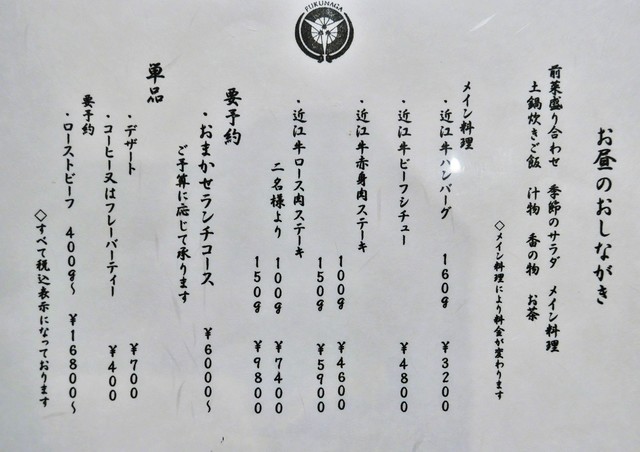 FUKUNAGA
お昼のおしながき
前菜盛り合わせ 季節のサラダ メイン料理
土鍋炊きご飯 汁物 香の物 お茶
◇メイン料理により料金が変わります
メイン料理
・近江牛ハンバーグ 160g ¥3200
・近江牛ビーフシチュー ¥4800
・近江牛赤身肉ステーキ 100g ¥4600
150g ¥5900
・近江牛ロース肉ステーキ
二名様より 100g ¥7400
150g ¥9800
要予約
・おまかせランチコース ¥6000〜
ご予算に応じて承ります
単品
・デザート ¥700
・コーヒー又はフレーバーティー ¥400
要予約
・ローストビーフ 400g〜 ¥16800〜
◇すべて税込表示になっております